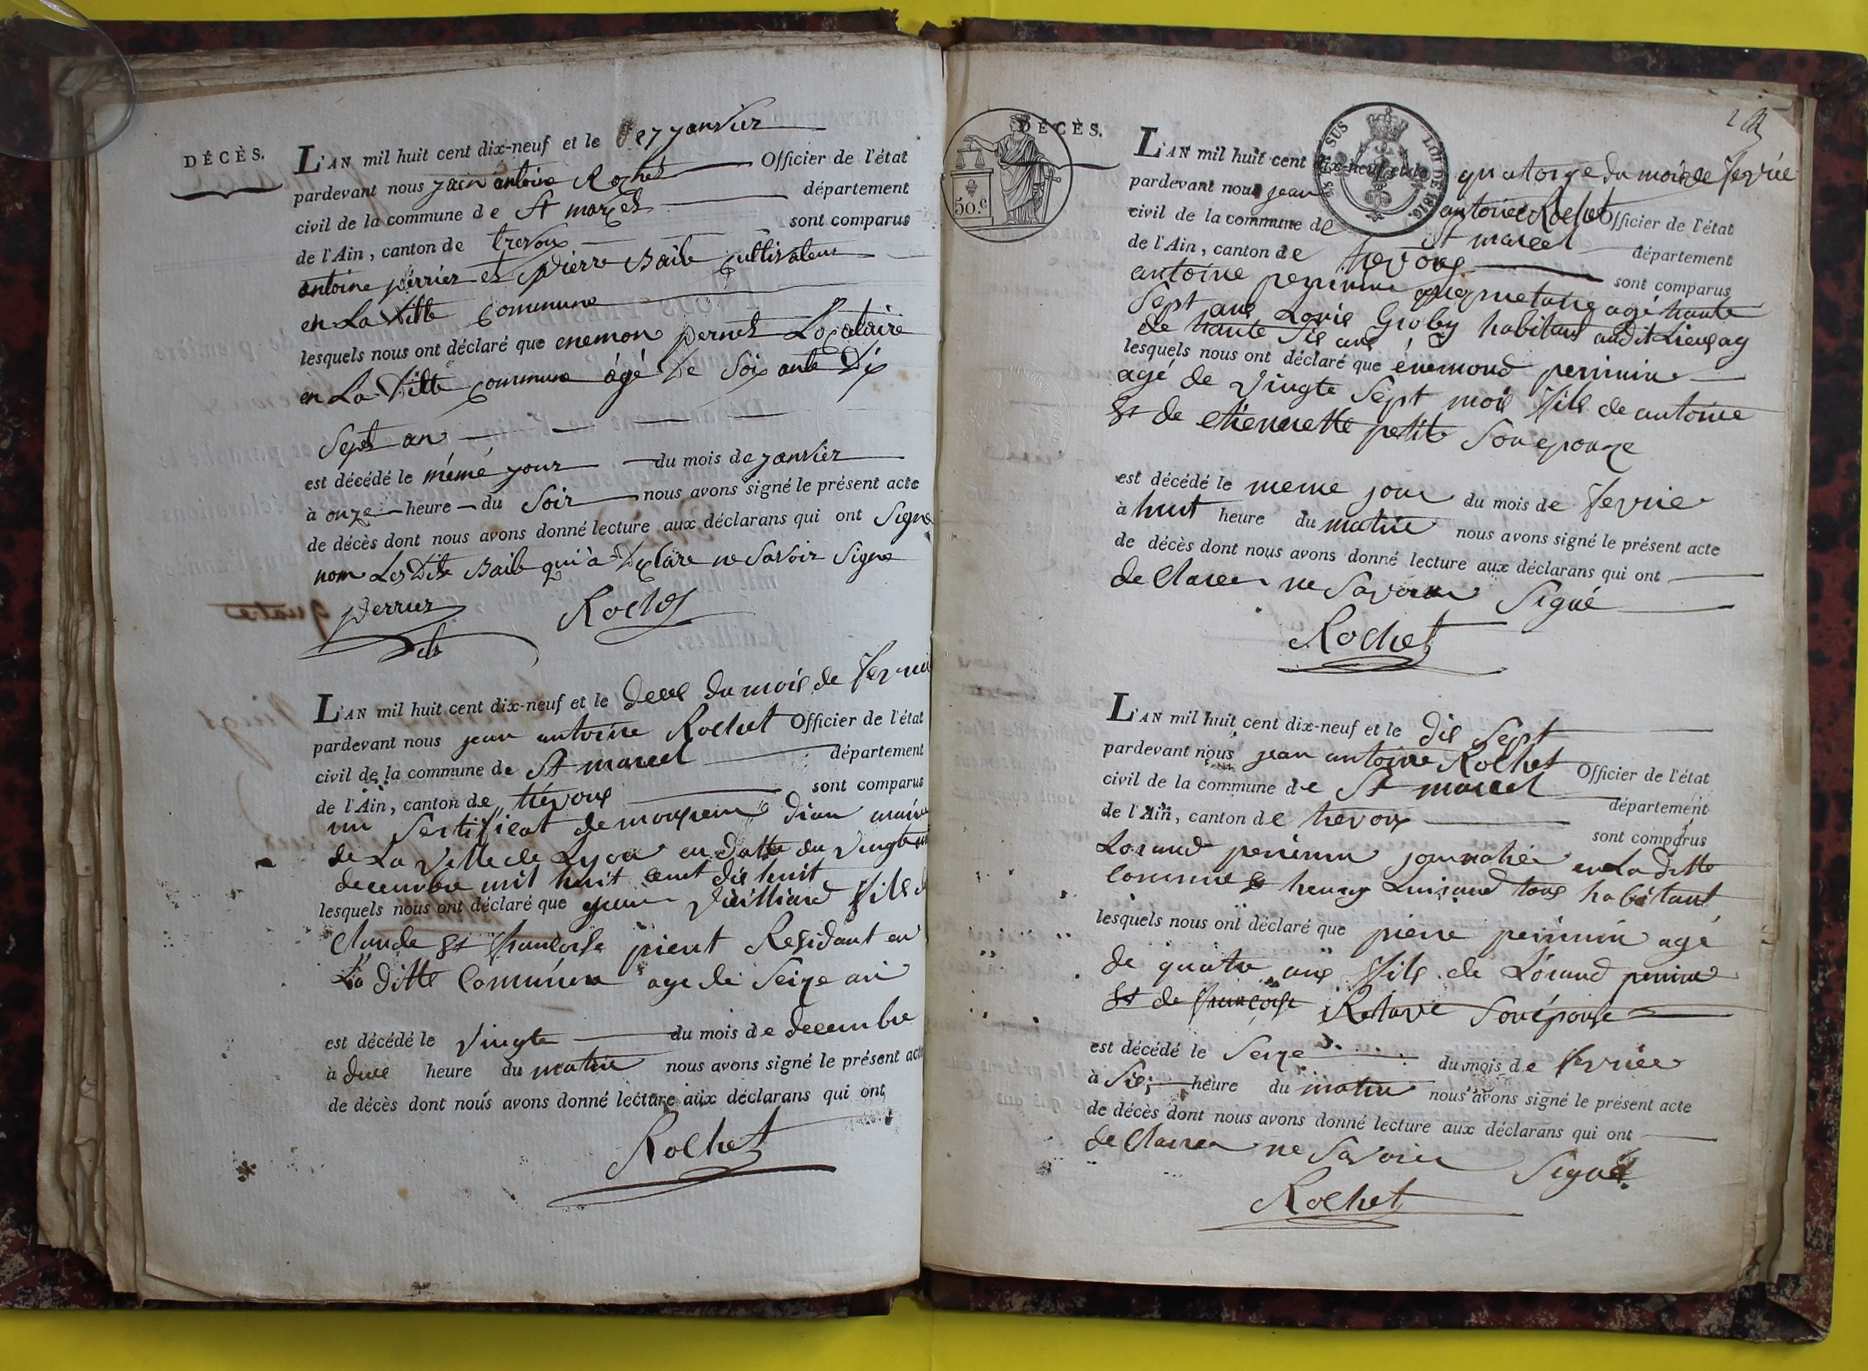 DÉCÈS.
L'AN mil huit cent dix-neuf et le 27 janvier
pardevant nous jean antoine Rochet Officier de l'état
civil de la commune de St marcel département
de l'Ain, canton de trevoux sont comparus
antoine perrier et pierre Baile cultivateur
en La ditte commune
lesquels nous ont déclaré que enemon pernet Locataire
en La ditte commune âgé de Soixante Dix
Sept an
est décédé le mémé jour du mois de janvier
à onze heure du Soir nous avons signé le présent acte
de décès dont nous avons donné lecture aux déclarans qui ont Signe
nom Les Dit Baile qui à Déclare ne Savoir Signe
perrier Rochet
quatre
L'AN mil huit cent dix-neuf et le deux du mois de fevrie
pardevant nous jean antoine Rochet Officier de l'état
civil de la commune de St marcel département
de l'Ain, canton de trévoux sont comparus
un Sertificat de monsieur maire
de La Ville de Lyon en datte du Vingt
decembre mil huit cent dis huit
lesquels nous ont déclaré que Vuilliard fils
Claude Et francoise Residant en
La ditte Commune age de Seize an
est décédé le Vingte du mois de decembre
à deux heure du matin nous avons signé le présent acte
de décès dont nous avons donné lecture aux déclarans qui ont
Rochet
DÉCÈS.
50.c
EN SUS LOI DE 1816.
L'AN mil huit cent dix-neuf et le quatorze du mois de fevrie
pardevant nous jean antoine Rochet Officier de l'état
civil de la commune de St marcel département
de l'Ain, canton de trevoux sont comparus
antoine perinin propriétaire agé trante
Sept ans Louis Groby habitant audit Lieu ag
de trante Sis ans
lesquels nous ont déclaré que énemond perinin
agé de Vingte Sept mois fils de antoine
Et de etiennette petit Son epouze
est décédé le meme jour du mois de fevrie
à huit heure du matin nous avons signé le présent acte
de décès dont nous avons donné lecture aux déclarans qui ont
de Clarer ne Savoir Signé
Rochet
L'AN mil huit cent dix-neuf et le dis Sept
pardevant nous jean antoine Rochet Officier de l'état
civil de la commune de St marcel département
de l'Ain, canton de trevoux sont comparus
Lorand perinin journalier en La ditte
Commune Et henry tous habitant
lesquels nous ont déclaré que pierre perinin agé
de quatre ans fils de Lorand perinin
Et de francoise Son épouse
est décédé le Seize du mois de fevrier
à Sis heure du matin nous avons signé le présent acte
de décès dont nous avons donné lecture aux déclarans qui ont
de Clarer ne Savoir Signé
Rochet